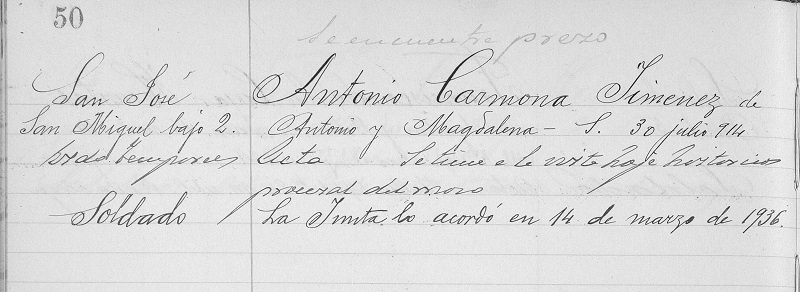 50
Se encuentra prezo
San José Antonio Carmona Jimenez de
San Miguel bajo 2. Antonio y Magdalena - S. 30 julio 914
Acta Se une a la vista hoja
procesal del mozo
Soldado La Junta lo acordó en 14 de marzo de 1936.